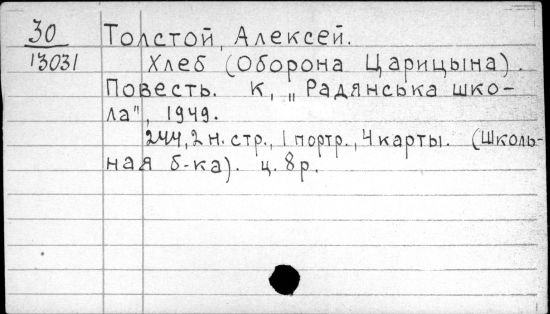 30 Толстой, Алексей.
13031 Хлеб (Оборона Царицына).
Повесть. К, „Радянська шко-
ла", 1949.
244, 2 н. стр., 1 портр., 4 карты. (Школь-
ная б-ка). ц. 8 р.